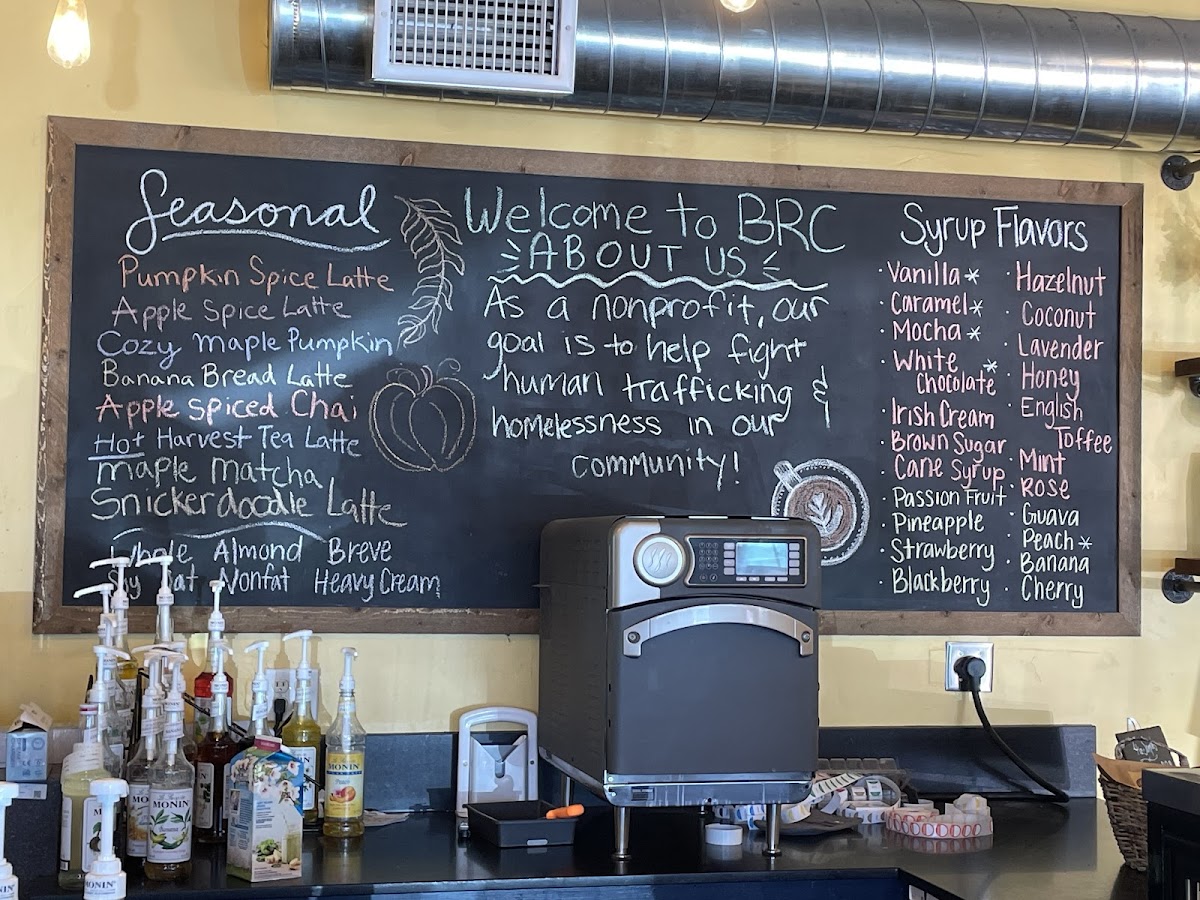 Seasonal
Pumpkin Spice Latte
Apple Spice Latte
Cozy maple Pumpkin
Banana Bread Latte
Apple spiced Chai
Hot Harvest Tea Latte
maple matcha
Snickerdoodle Latte
Whole Almond Breve
Soy Oat Nonfat Heavy Cream
Welcome to BRC
ABOUT US
As a nonprofit, our
goal is to help fight
human trafficking &
homelessness in our
community!
Syrup Flavors
· Vanilla *
· Caramel *
· Mocha *
· White
Chocolate *
· Irish Cream
· Brown Sugar
· Cane Syrup
· Passion Fruit
· Pineapple
· Strawberry
· Blackberry
· Hazelnut
· Coconut
· Lavender
· Honey
· English
Toffee
· Mint
· Rose
· Guava
· Peach *
· Banana
· Cherry
MONIN
MONIN
Banana
Peach
MONIN
MONIN